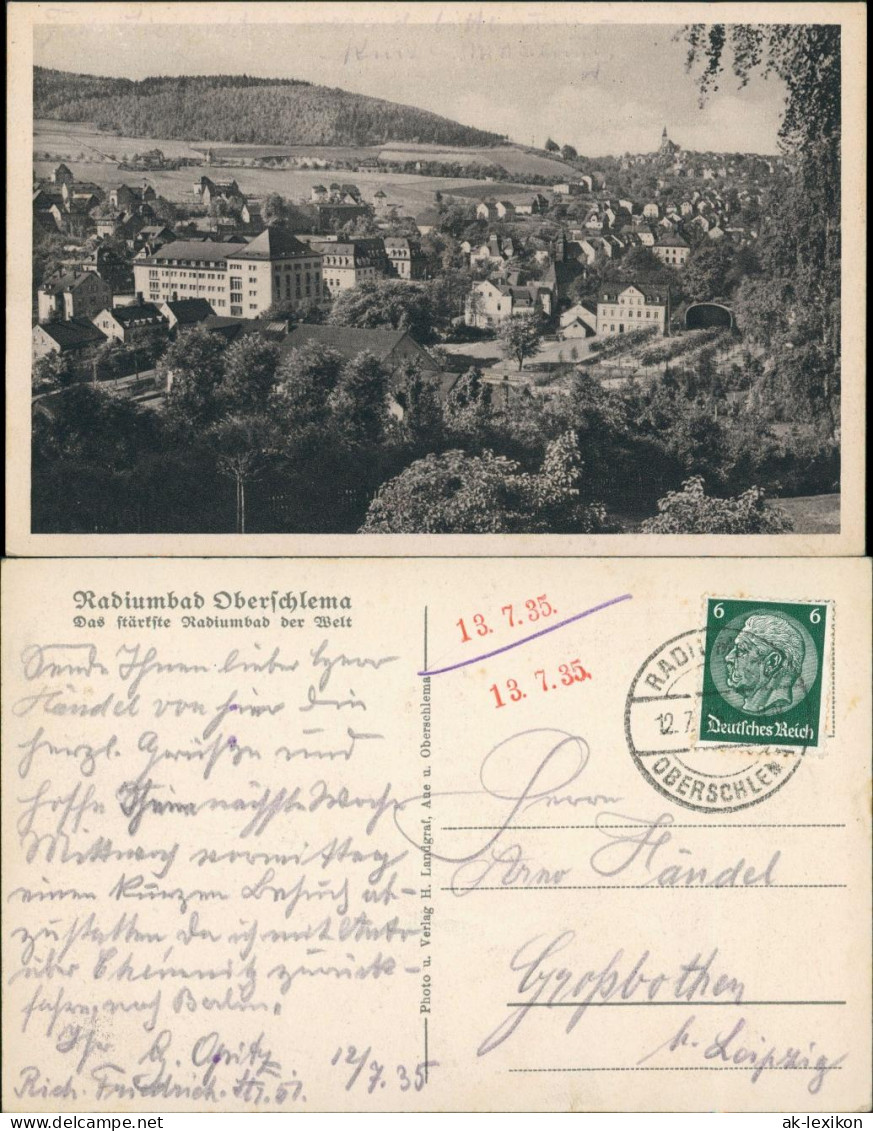 Radiumbad Oberschlema
Das stärkste Radiumbad der Welt
Sende Ihnen lieber Herr
Händel von hier die
herzl. Grüße und
hoffe Ihnen nächste Woche
Mittwoch vormittag
einen kurzen Besuch ab-
zustatten, da ich mit Auto
über Chemnitz zurück-
fahre, nach Berlin.
Ihr R. Opitz
Rich. Friedrich-Str. 51. 12/7.35
Photo u. Verlag H. Landgraf, Aue u. Oberschlema
13. 7. 35.
13. 7. 35.
6 6
Deutsches Reich
12.7.
OBERSCHLEMA
Herrn
Arno Händel
Großbothen
b. Leipzig
ak-lexikon